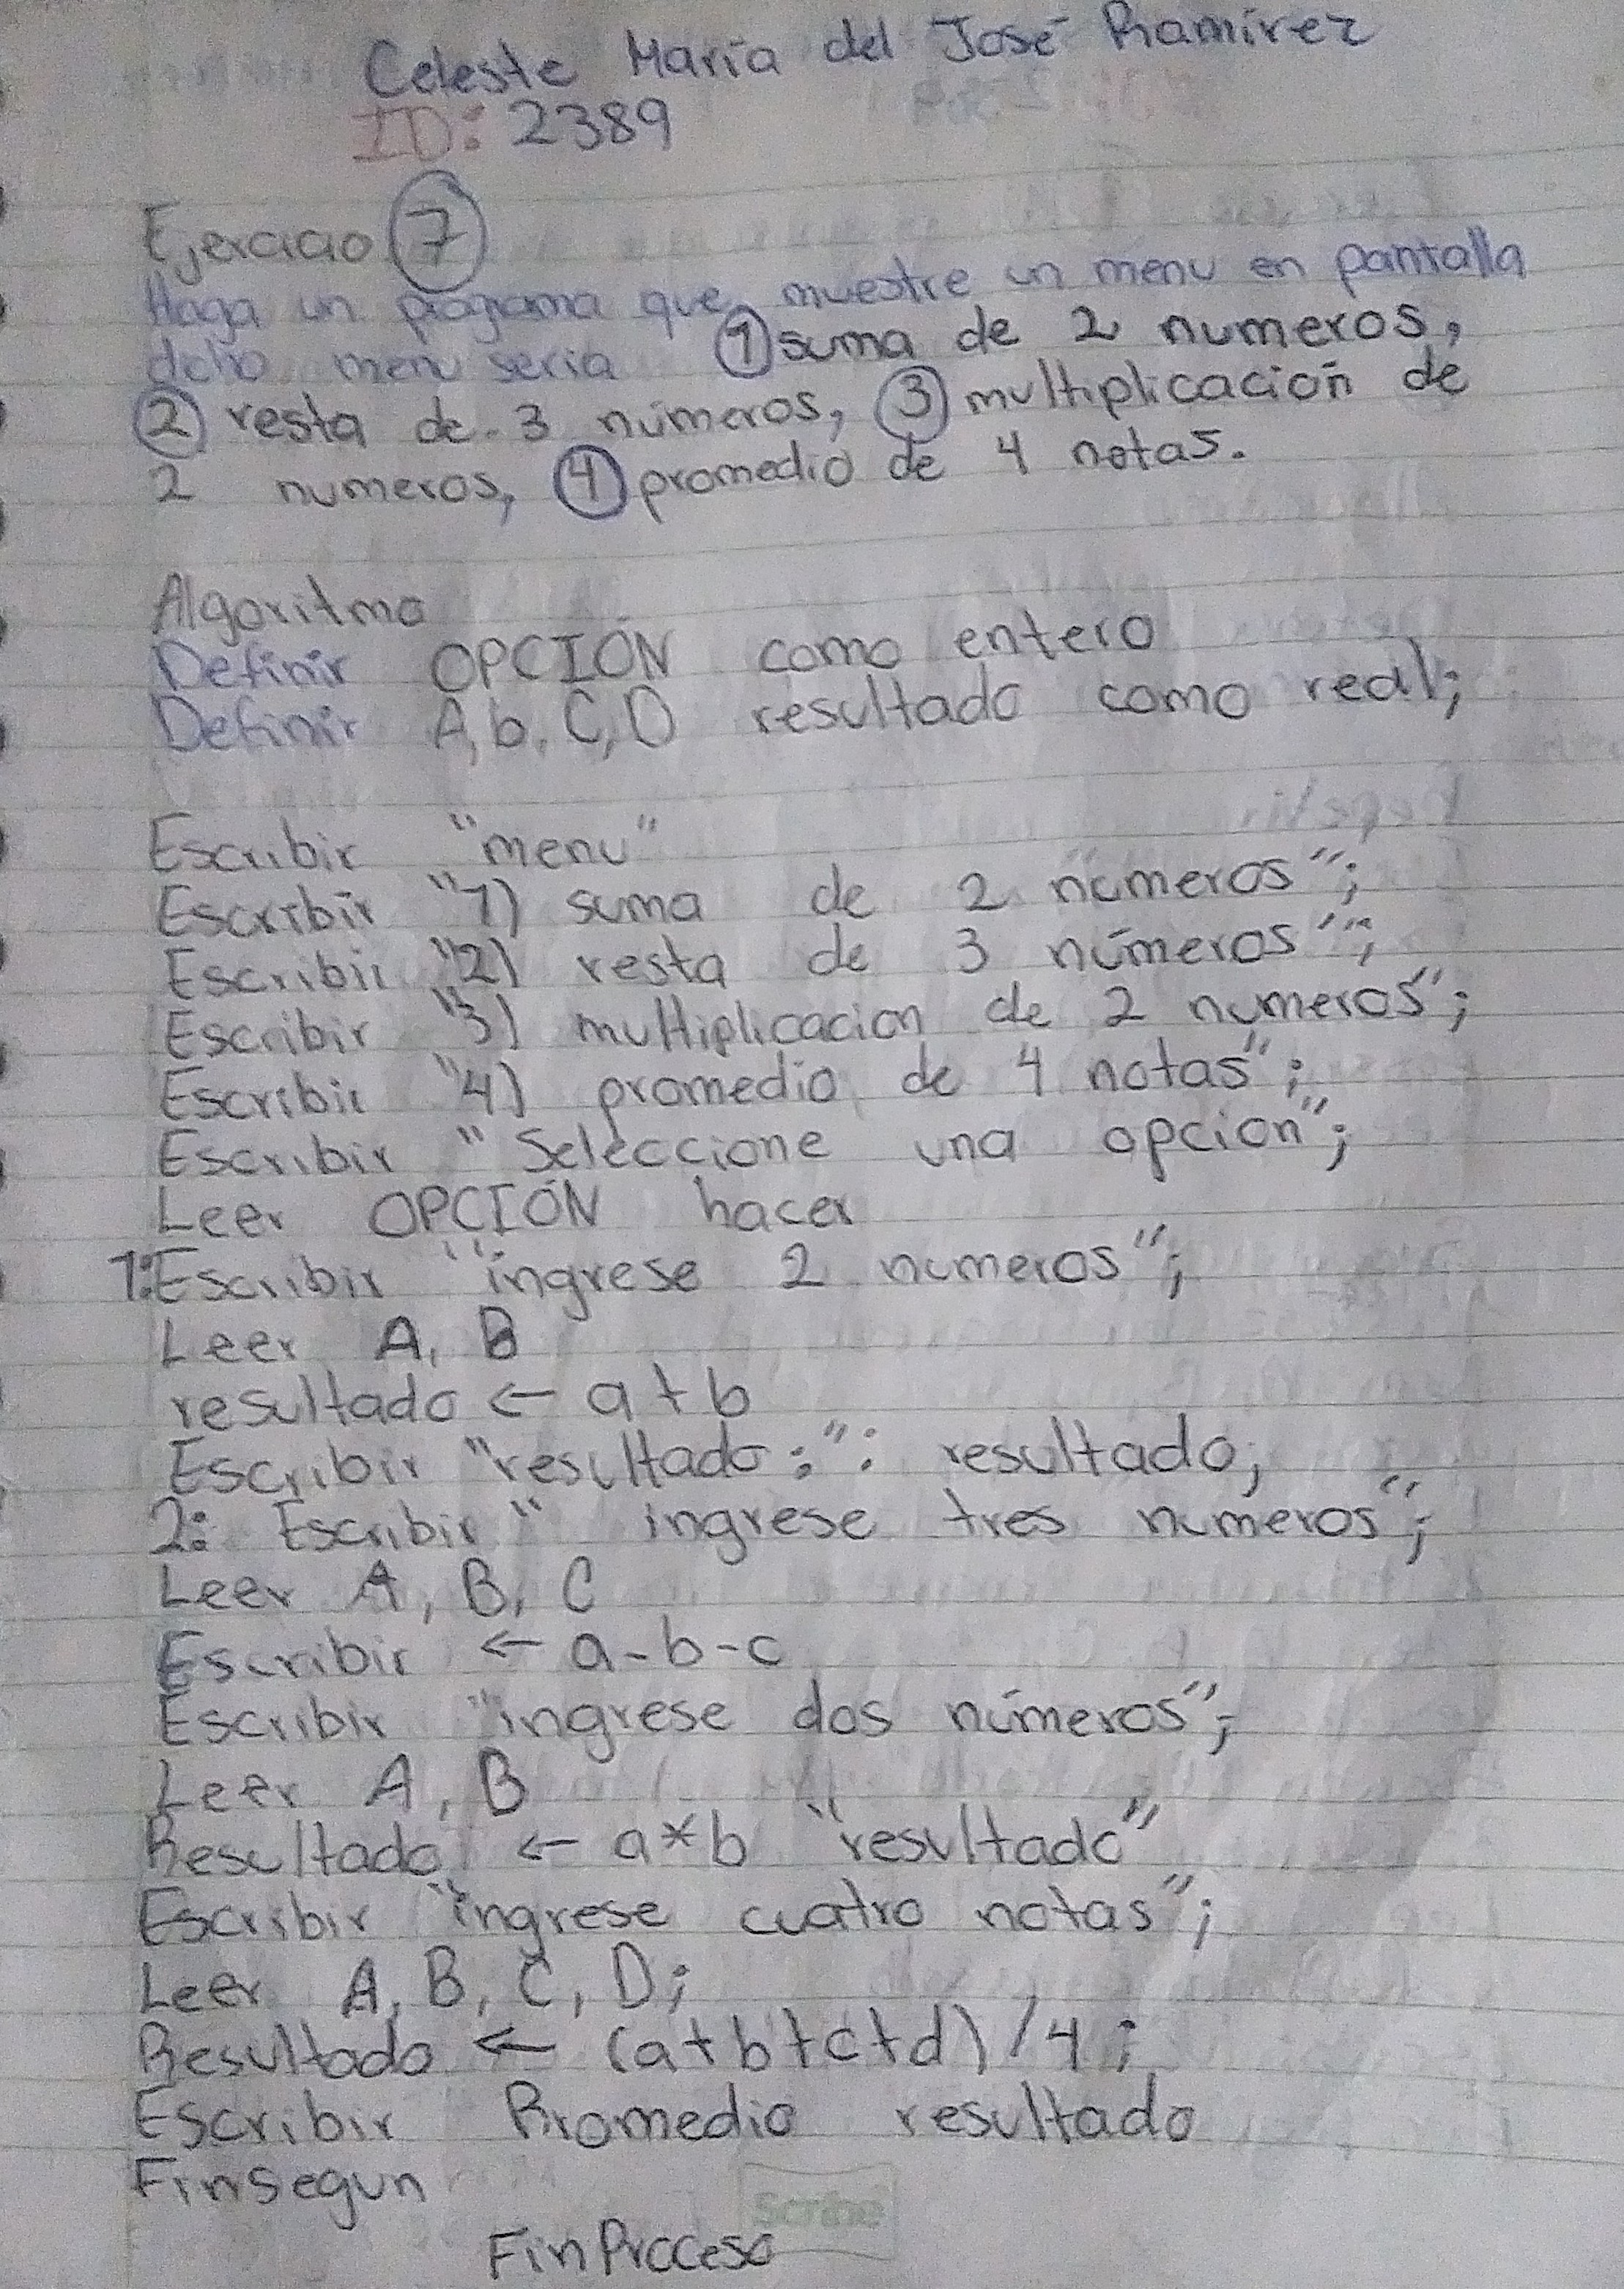 Celeste María del José Ramírez
ID: 2389
Ejercicio 7
Haga un programa que muestre un menu en pantalla
dicho menu seria 1 suma de 2 numeros,
2 resta de 3 números, 3 multiplicación de
2 numeros, 4 promedio de 4 notas.
Algoritmo
Definir OPCIÓN como entero
Definir A, b, C, D resultado como real;
Escribir "menu"
Escribir "1) suma de 2 numeros";
Escribir "2) resta de 3 números";
Escribir "3) multiplicacion de 2 numeros";
Escribir "4) promedio de 4 notas";
Escribir "Seleccione una opcion";
Leer OPCIÓN hacer
1: Escribir "ingrese 2 numeros";
Leer A, B
resultado ← a+b
Escribir "resultado:": resultado;
2: Escribir "ingrese tres numeros";
Leer A, B, C
Escribir ← a-b-c
Escribir "ingrese dos números";
Leer A, B
Resultado ← a*b "resultado"
Escribir "ingrese cuatro notas";
Leer A, B, C, D;
Resultado ← (a+b+c+d)/4;
Escribir Promedio resultado
FinSegun
Scribe
FinProceso